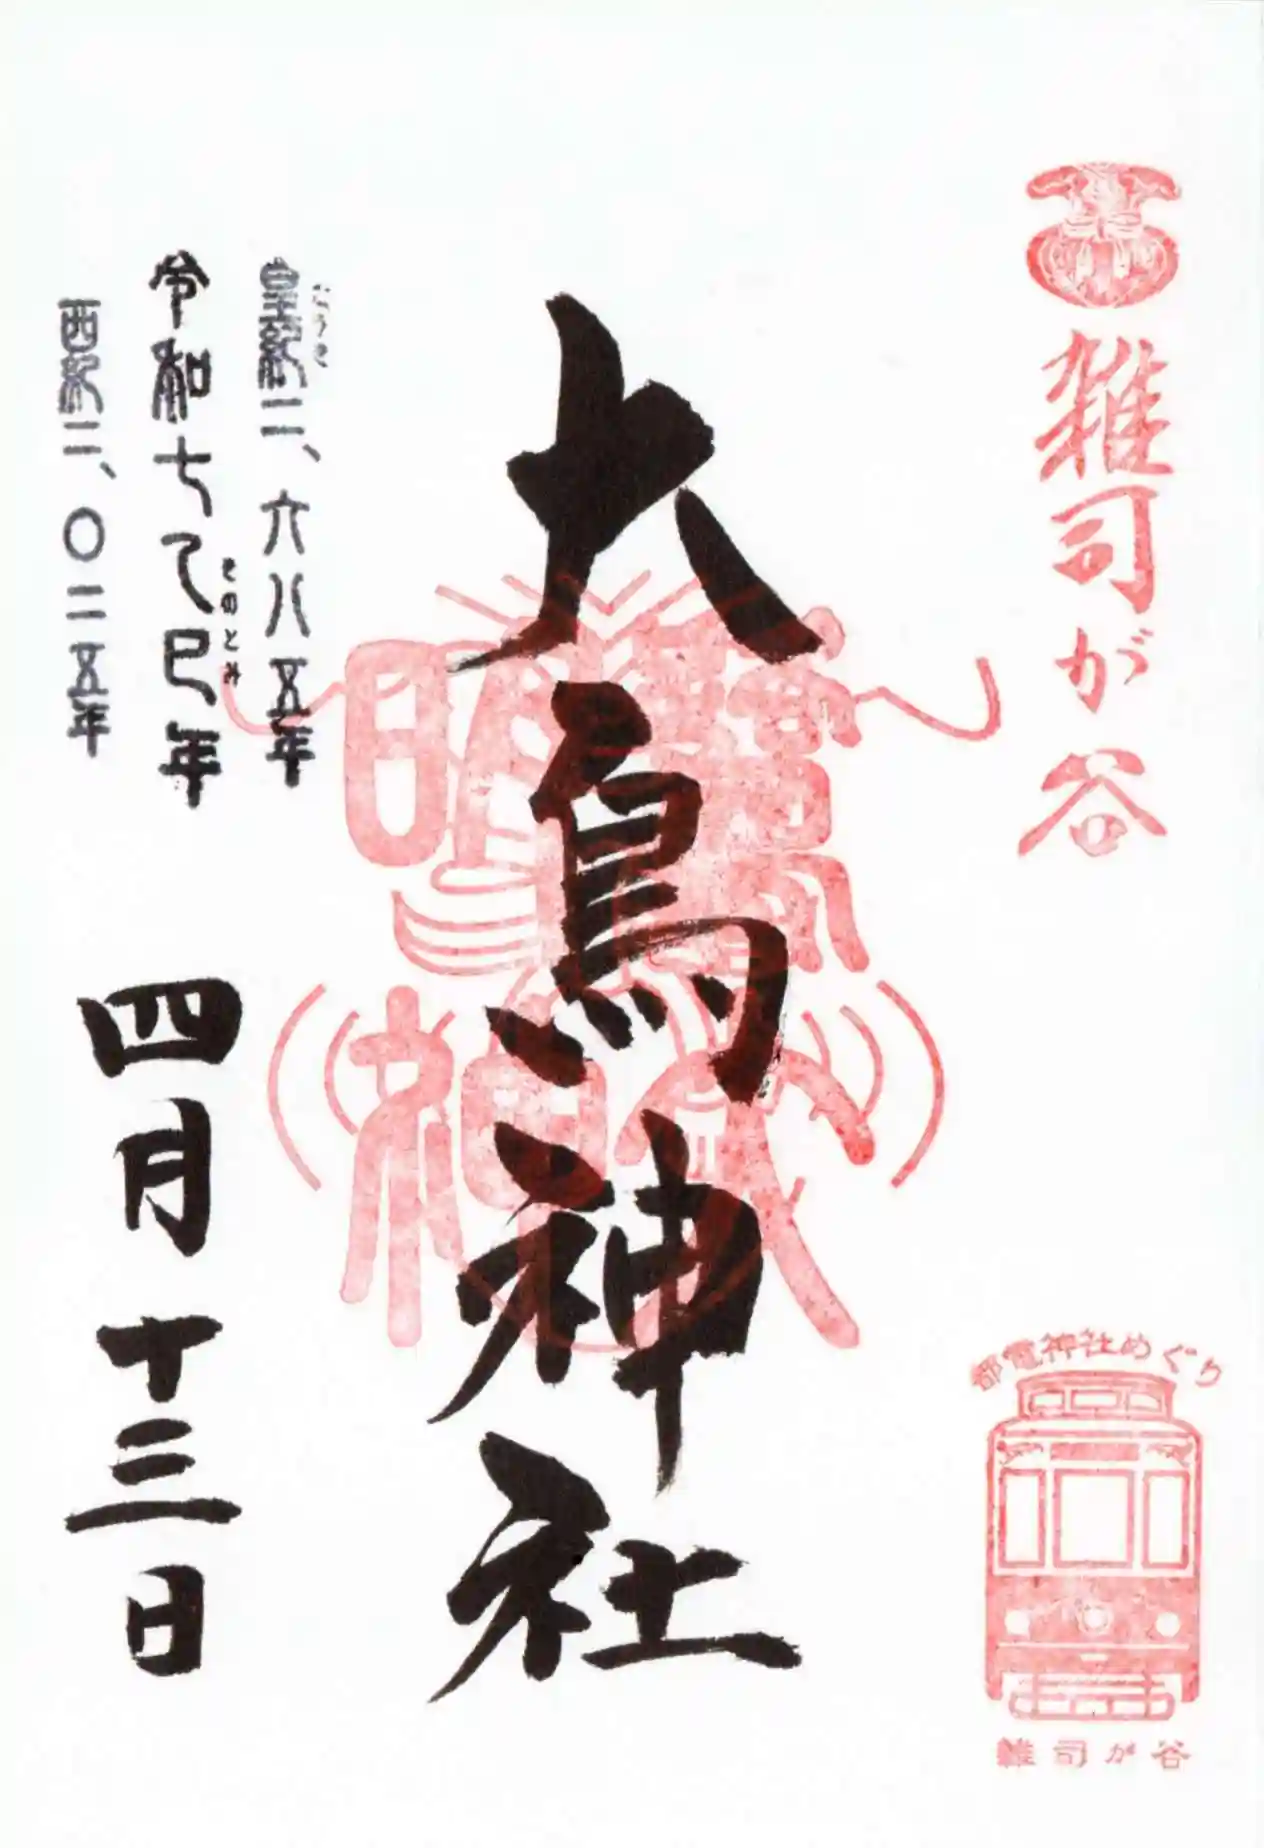 雑司が谷
大鳥神社
皇紀二、六八五年
こうき
令和七乙巳年
きのとみ
西紀二、〇二五年
四月十三日
都電神社めぐり
雑司が谷